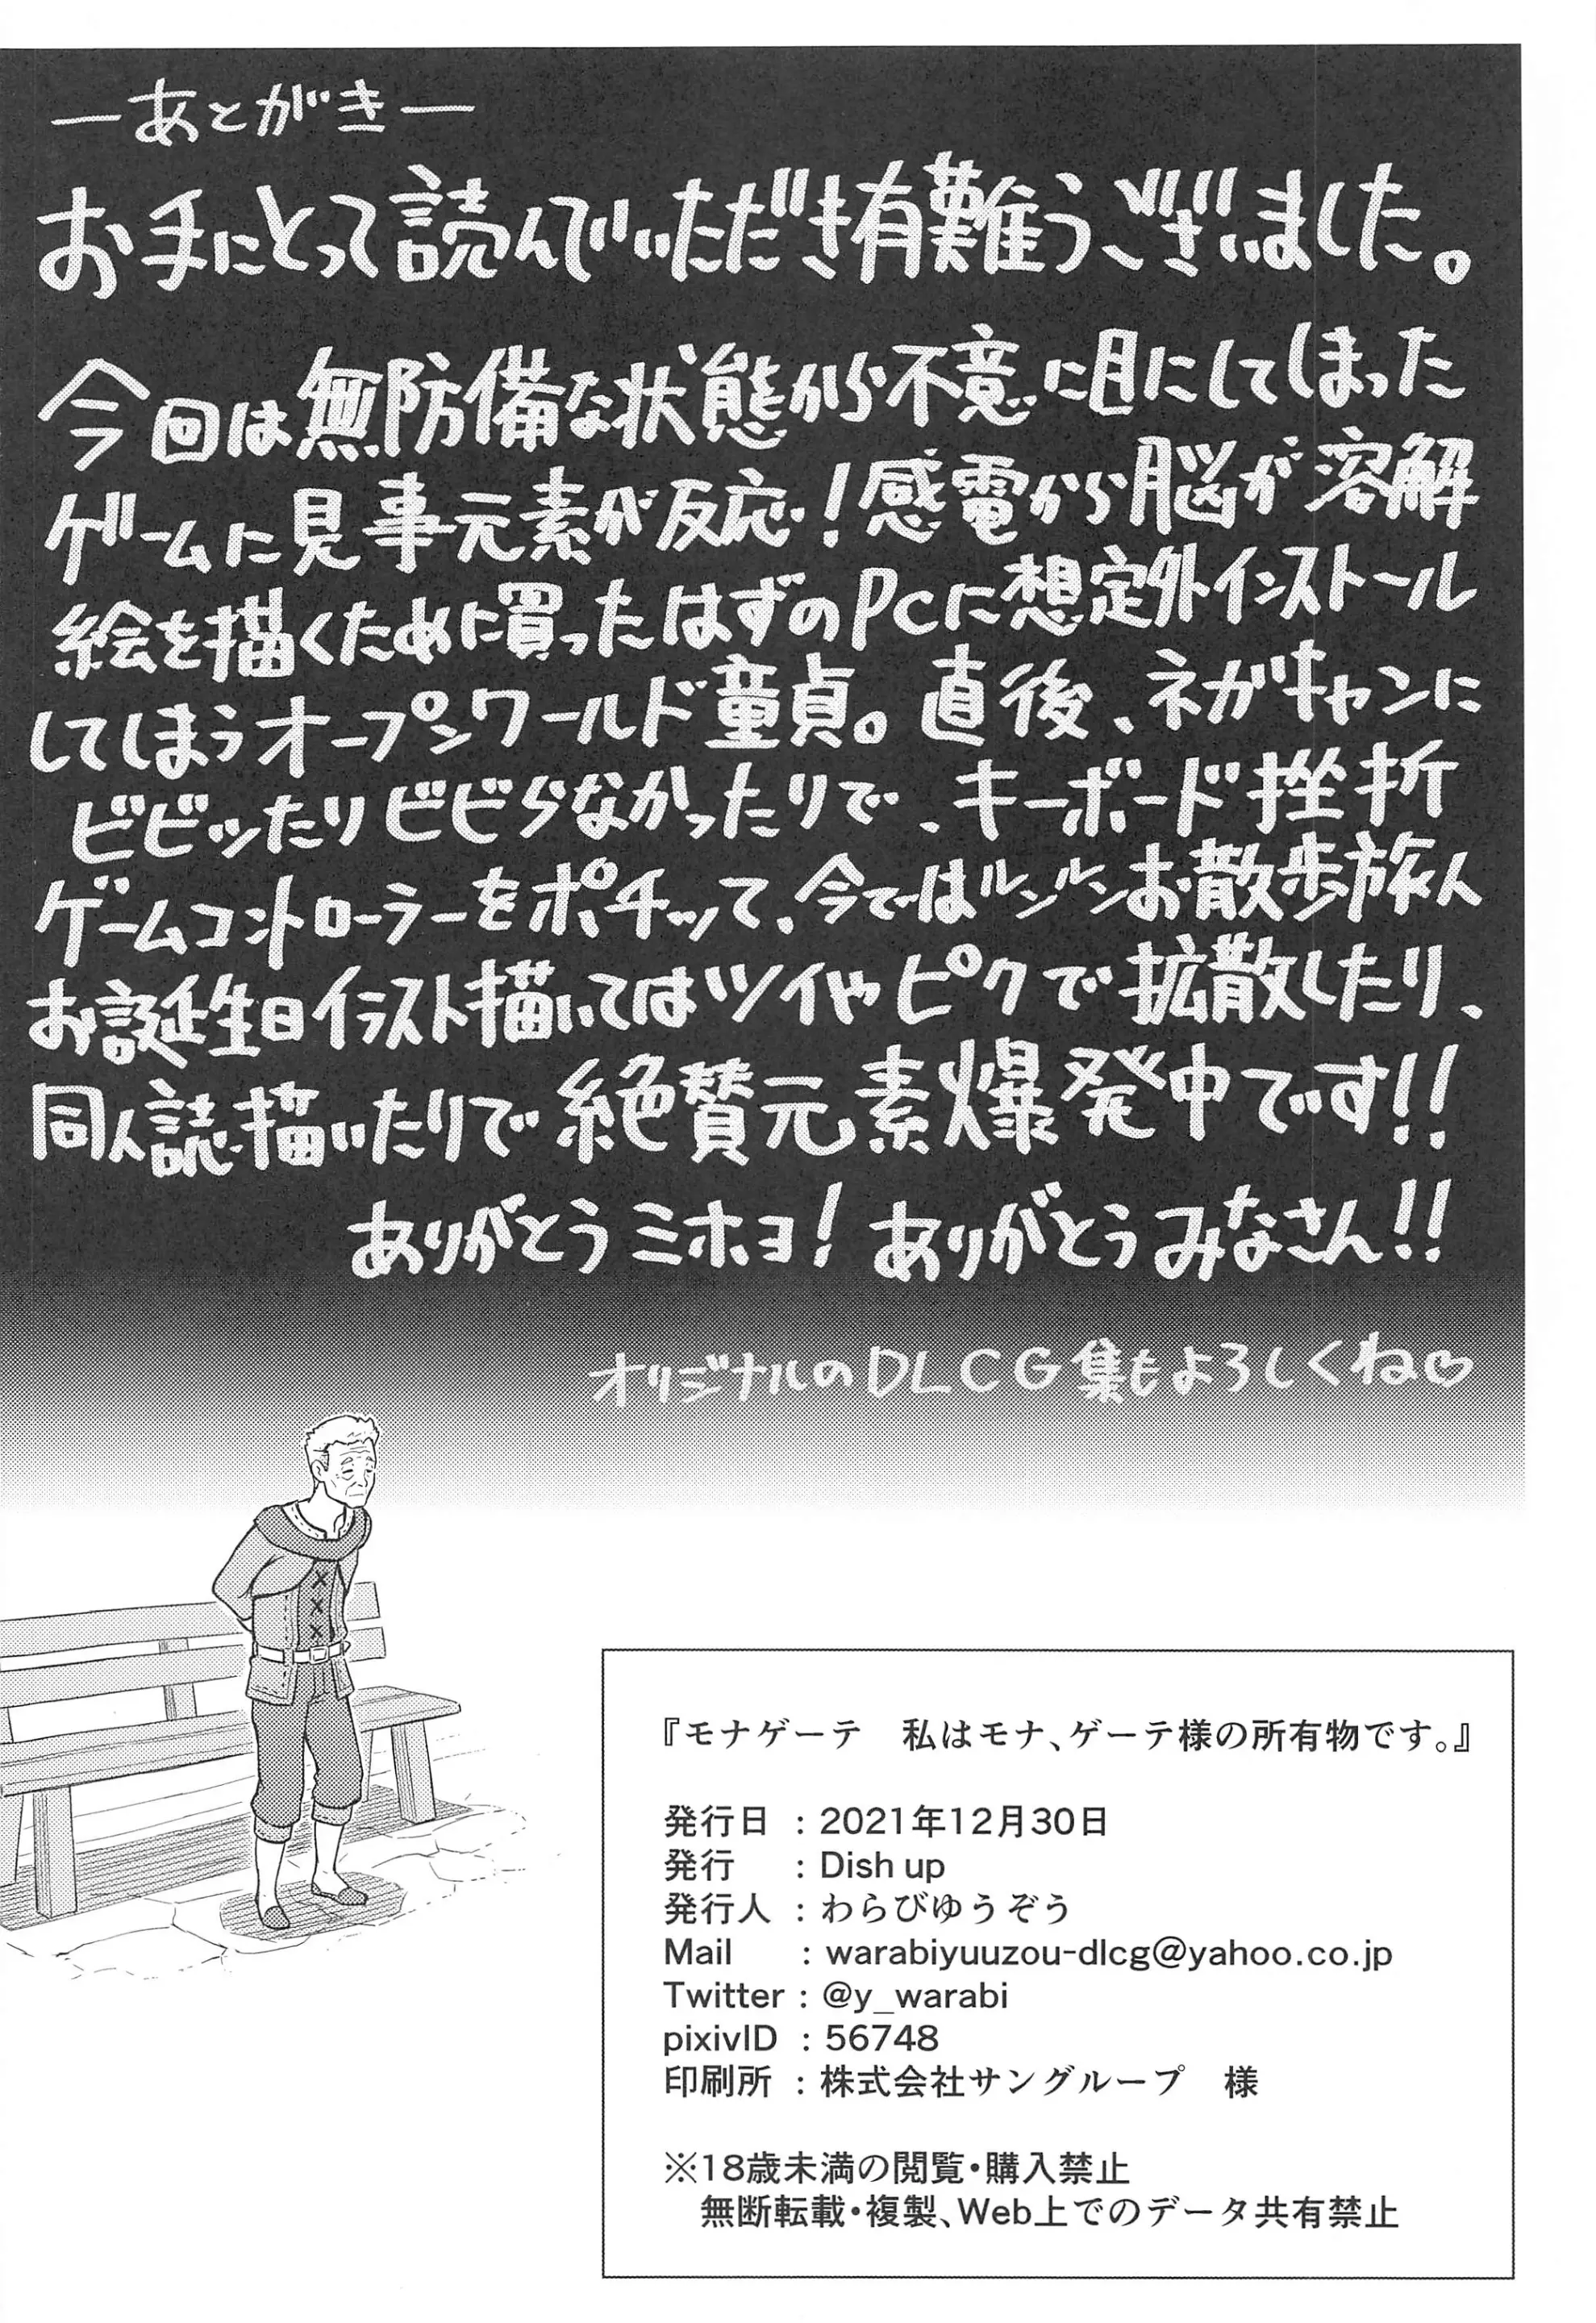 ―あとがき―
お手にとって読んでいただき有難うございました。
今回は無防備な状態から不意に目にしてしまった
ゲームに見事元素が反応！感電から脳が溶解
絵を描くために買ったはずのPcに想定外インストール
してしまうオープンワールド童貞。直後、ネガキャンに
ビビッたりビビらなかったりで、キーボード挫折
ゲームコントローラーをポチッて、今ではルンルンお散歩旅人
お誕生日イラスト描いてはツイやピクで拡散したり、
同人誌描いたりで絶賛元素爆発中です!!
ありがとうミホヨ！ありがとうみなさん!!
オリジナルのDLCG集もよろしくね♡
『モナゲーテ　私はモナ、ゲーテ様の所有物です。』
発行日 : 2021年12月30日
発行 : Dish up
発行人 : わらびゆうぞう
Mail : warabiyuuzou-dlcg@yahoo.co.jp
Twitter : @y_warabi
pixivID : 56748
印刷所 : 株式会社サングループ　様
※18歳未満の閲覧・購入禁止
無断転載・複製、Web上でのデータ共有禁止